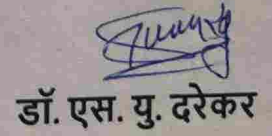 डॉ. एस. यु. दरेकर